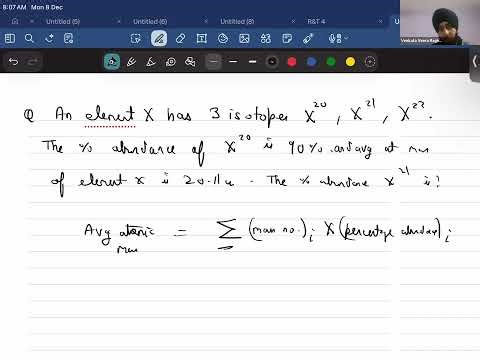 8:07 AM Mon 8 Dec
Untitled (5)
Untitled (6)
Untitled (8)
R&T 4
Q An element X has 3 isotopes X²⁰, X²¹, X²².
The % abundance of X²⁰ is 90% and avg at mass
of element x is 20.11u. The % abundance X²¹ is?
Avg atomic = Σ (mass no.)ᵢ X (percentage abundance)ᵢ
mass